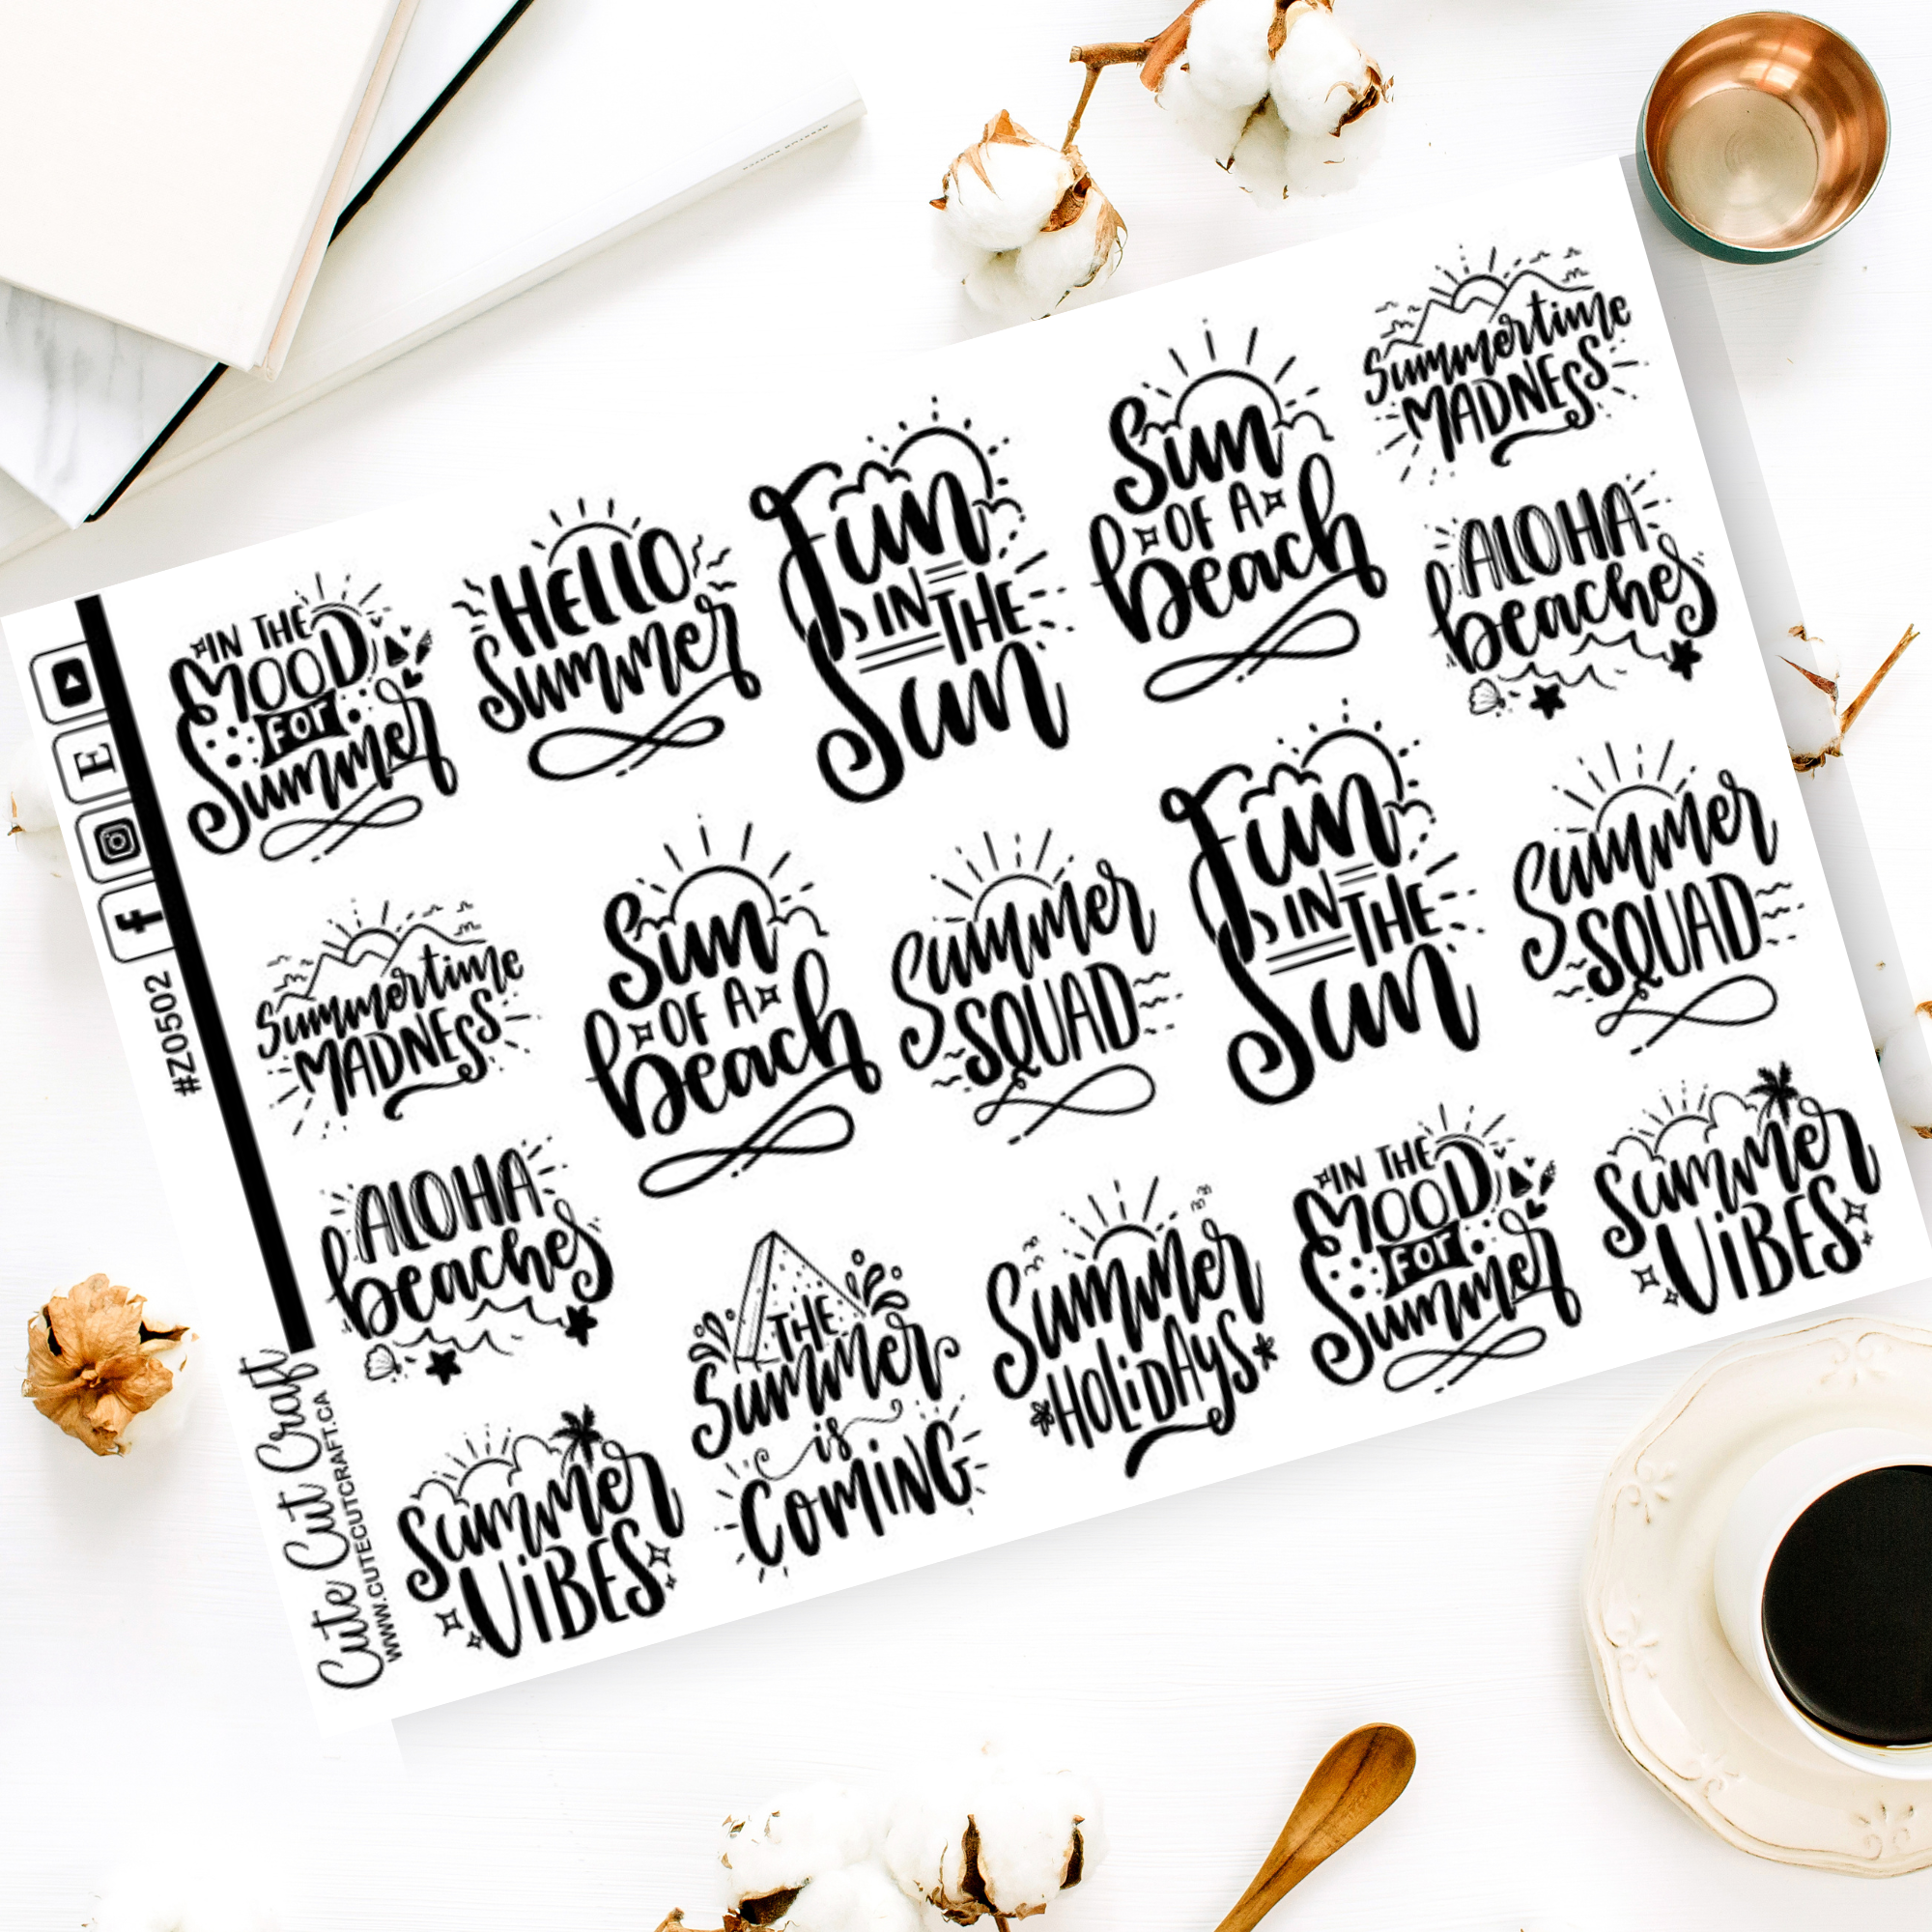 IN THE
MOOD
FOR
Summer
HELLO
Summer
Fun
IN THE
Sun
Sun
OF A
beach
Summertime
MADNESS
ALOHA
beaches
Summertime
MADNESS
Sun
OF A
beach
Summer
SQUAD
Fun
IN THE
Sun
Summer
SQUAD
ALOHA
beaches
THE
Summer
is
COMING
Summer
HOLiDAYS
IN THE
MOOD
FOR
Summer
Summer
ViBES
Summer
ViBES
E
f
#Z0502
Cute Cut Craft
WWW.CUTECUTCRAFT.CA